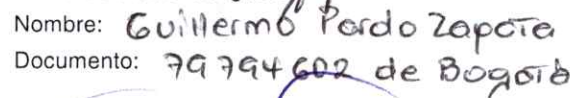 Nombre: Guillermo Pardo Zapata
Documento: 79794602 de Bogotá